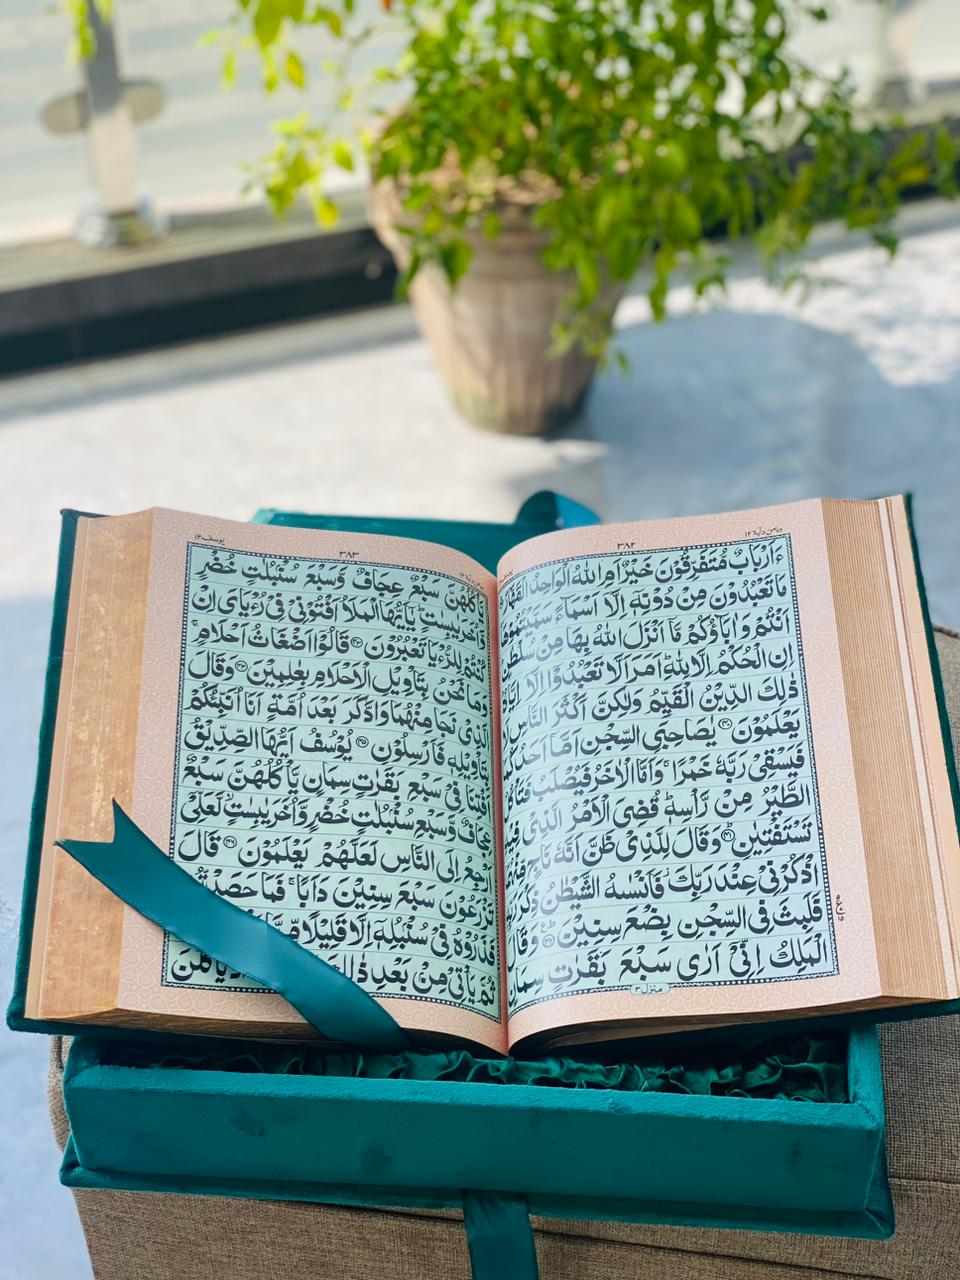 وما من دآبة ١٢
٣٨٢
ءَاَرْبَابٌ مُّتَفَرِّقُوْنَ خَيْرٌ اَمِ اللّٰهُ الْوَاحِدُ الْقَهَّارُ
مَا تَعْبُدُوْنَ مِنْ دُوْنِهٖۤ اِلَّاۤ اَسْمَآءً سَمَّيْتُمُوْهَاۤ
اَنْتُمْ وَاٰبَآؤُكُمْ مَّاۤ اَنْزَلَ اللّٰهُ بِهَا مِنْ سُلْطٰنٍ
اِنِ الْحُكْمُ اِلَّا لِلّٰهِ ؕ اَمَرَ اَلَّا تَعْبُدُوْۤا اِلَّاۤ اِيَّاهُ
ذٰلِكَ الدِّيْنُ الْقَيِّمُ وَلٰكِنَّ اَكْثَرَ النَّاسِ
يَعْلَمُوْنَ ﴿۴۰﴾ يٰصَاحِبَيِ السِّجْنِ اَمَّاۤ اَحَدُكُمَا
فَيَسْقِيْ رَبَّهٗ خَمْرًا ۚ وَاَمَّا الْاٰخَرُ فَيُصْلَبُ فَتَاْكُلُ
الطَّيْرُ مِنْ رَّاْسِهٖ ؕ قُضِيَ الْاَمْرُ الَّذِيْ فِيْهِ
تَسْتَفْتِيٰنِ ﴿۴۱﴾ وَقَالَ لِلَّذِيْ ظَنَّ اَنَّهٗ نَاجٍ مِّنْهُمَا
اذْكُرْنِيْ عِنْدَ رَبِّكَ ؗ فَاَنْسٰىهُ الشَّيْطٰنُ ذِكْرَ رَبِّهٖ
فَلَبِثَ فِي السِّجْنِ بِضْعَ سِنِيْنَ ﴿۴۲﴾ وَقَالَ
الْمَلِكُ اِنِّيْۤ اَرٰى سَبْعَ بَقَرٰتٍ سِمَانٍ
منزل ٣
يوسف ١٢
٣٨٣
يَّاْكُلُهُنَّ سَبْعٌ عِجَافٌ وَّسَبْعَ سُنْۢبُلٰتٍ خُضْرٍ
وَّاُخَرَ يٰبِسٰتٍ ؕ يٰۤاَيُّهَا الْمَلَاُ اَفْتُوْنِيْ فِيْ رُءْيَايَ اِنْ
كُنْتُمْ لِلرُّءْيَا تَعْبُرُوْنَ ﴿۴۳﴾ قَالُوْۤا اَضْغَاثُ اَحْلَامٍ ۚ
وَمَا نَحْنُ بِتَاْوِيْلِ الْاَحْلَامِ بِعٰلِمِيْنَ ﴿۴۴﴾ وَقَالَ
الَّذِيْ نَجَا مِنْهُمَا وَادَّكَرَ بَعْدَ اُمَّةٍ اَنَا اُنَبِّئُكُمْ
بِتَاْوِيْلِهٖ فَاَرْسِلُوْنِ ﴿۴۵﴾ يُوْسُفُ اَيُّهَا الصِّدِّيْقُ
اَفْتِنَا فِيْ سَبْعِ بَقَرٰتٍ سِمَانٍ يَّاْكُلُهُنَّ سَبْعٌ
عِجَافٌ وَّسَبْعِ سُنْۢبُلٰتٍ خُضْرٍ وَّاُخَرَ يٰبِسٰتٍ ۙ لَّعَلِّيْۤ
اَرْجِعُ اِلَى النَّاسِ لَعَلَّهُمْ يَعْلَمُوْنَ ﴿۴۶﴾ قَالَ
تَزْرَعُوْنَ سَبْعَ سِنِيْنَ دَاَبًا ۚ فَمَا حَصَدْتُّمْ
فَذَرُوْهُ فِيْ سُنْۢبُلِهٖۤ اِلَّا قَلِيْلًا
ثُمَّ يَاْتِيْ مِنْۢ بَعْدِ ذٰلِكَ يَّاْكُلْنَ